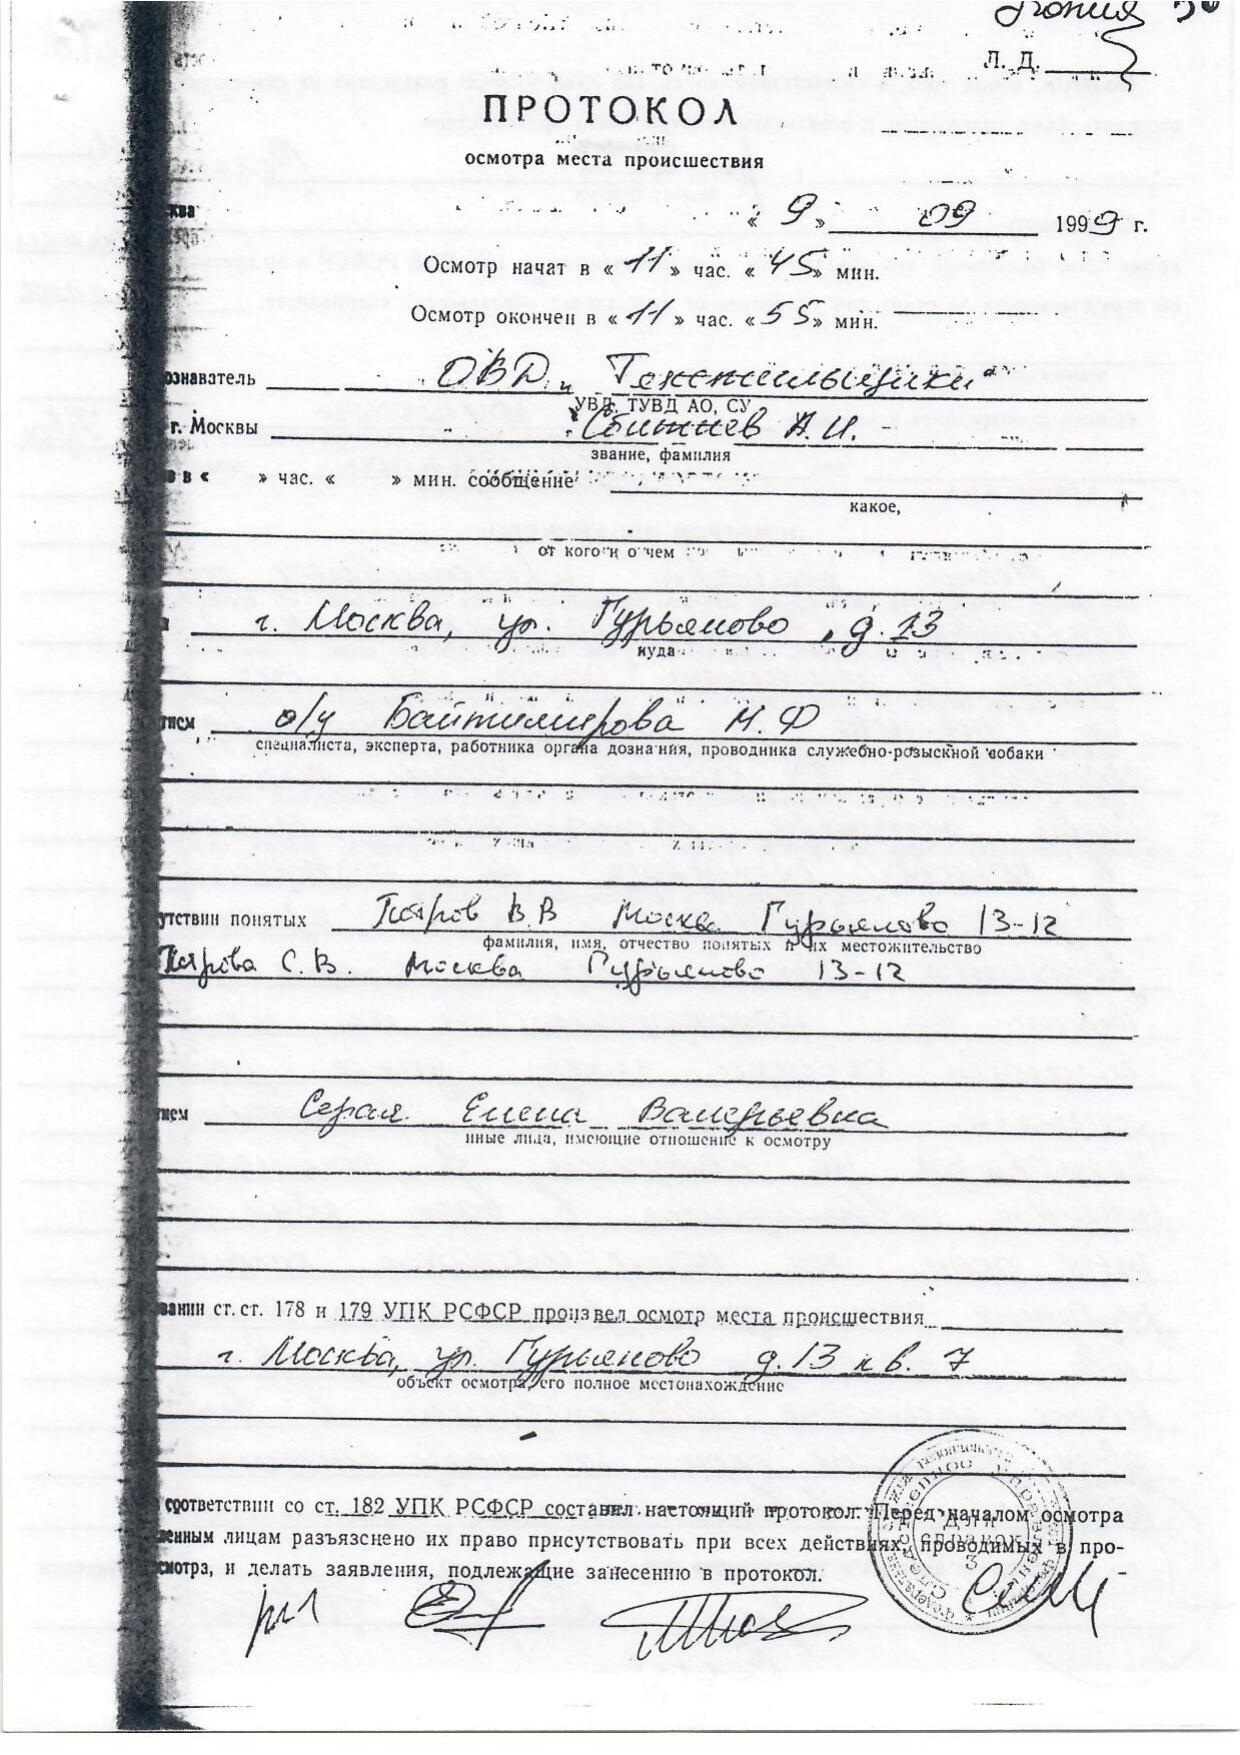 Копия 30
Л. Д.
ПРОТОКОЛ
осмотра места происшествия
ква « 9 » 09 1999 г.
Осмотр начат в « 11 » час. « 45 » мин.
Осмотр окончен в « 11 » час. « 55 » мин.
ознаватель ОВД „Текстильщики“
УВД, ТУВД АО, СУ
г. Москвы А.И.
звание, фамилия
в в « » час. « » мин. сообщение
какое,
от кого и о чем
г. Москва, ул. Гурьяново, д. 13
куда
тием о/у Байтимирова М.Ф
специалиста, эксперта, работника органа дознания, проводника служебно-розыскной собаки
утствии понятых В.В Москва Гурьяново 13-12
фамилия, имя, отчество понятых и их местожительство
С.В. Москва Гурьяново 13-12
тием Серая Елена Валерьевна
иные лица, имеющие отношение к осмотру
вании ст. ст. 178 и 179 УПК РСФСР произвел осмотр места происшествия
г. Москва, ул. Гурьяново д. 13 кв. 7
объект осмотра, его полное местонахождение
соответствии со ст. 182 УПК РСФСР составил настоящий протокол. Перед началом осмотра
ленным лицам разъяснено их право присутствовать при всех действиях, проводимых в про-
смотра, и делать заявления, подлежащие занесению в протокол.
Для
справок
3